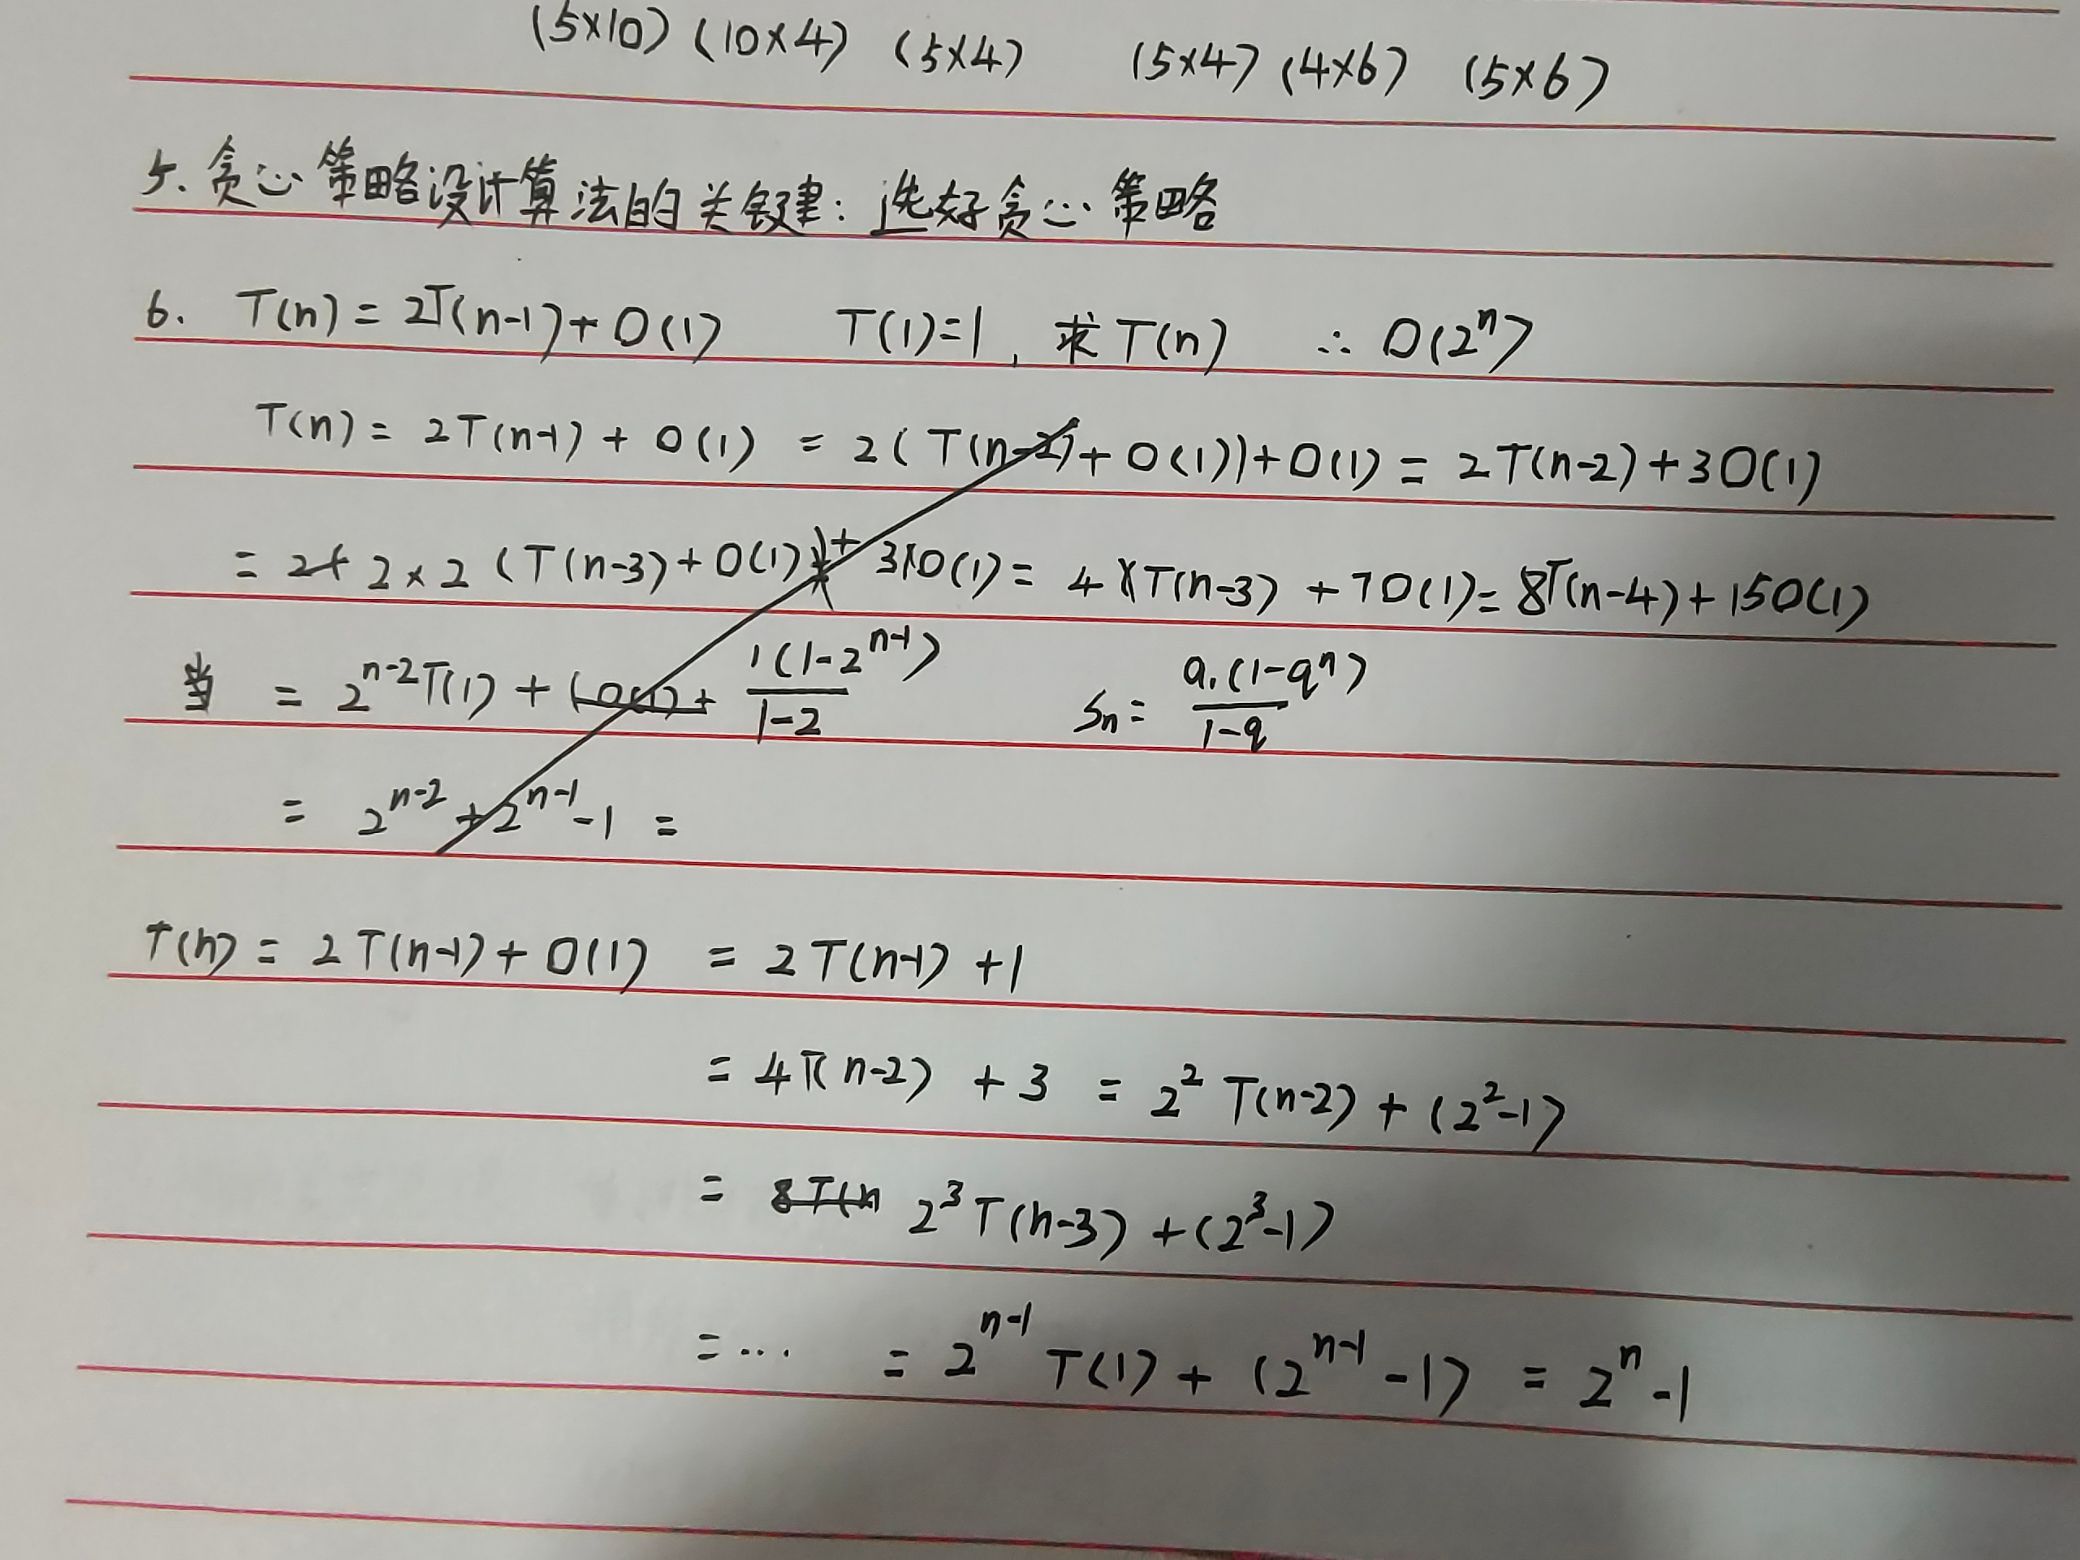 (5×10) (10×4) (5×4) (5×4) (4×6) (5×6)
5. 贪心策略设计算法的关键: 选好贪心策略
6. T(n) = 2T(n-1) + O(1) T(1)=1, 求T(n) ∴ O(2^n)
T(n) = 2T(n-1) + O(1) = 2(T(n-2) + O(1)) + O(1) = 2T(n-2) + 3O(1)
= 2×2(T(n-3) + O(1)) + 3O(1) = 4T(n-3) + 7O(1) = 8T(n-4) + 15O(1)
当 = 2^{n-2}T(1) + \frac{1(1-2^{n-1})}{1-2} Sn = \frac{a_1(1-q^n)}{1-q}
= 2^{n-2} + 2^{n-1} - 1 =
T(n) = 2T(n-1) + O(1) = 2T(n-1) + 1
= 4T(n-2) + 3 = 2^2 T(n-2) + (2^2-1)
= 8T(n 2^3 T(n-3) + (2^3-1)
= ... = 2^{n-1} T(1) + (2^{n-1} - 1) = 2^n - 1